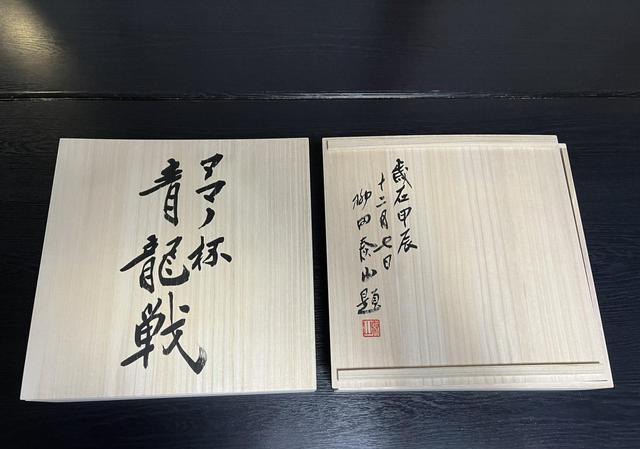 アマノ杯
青龍戦
歳在甲辰
十二月七日
柳田泰山題